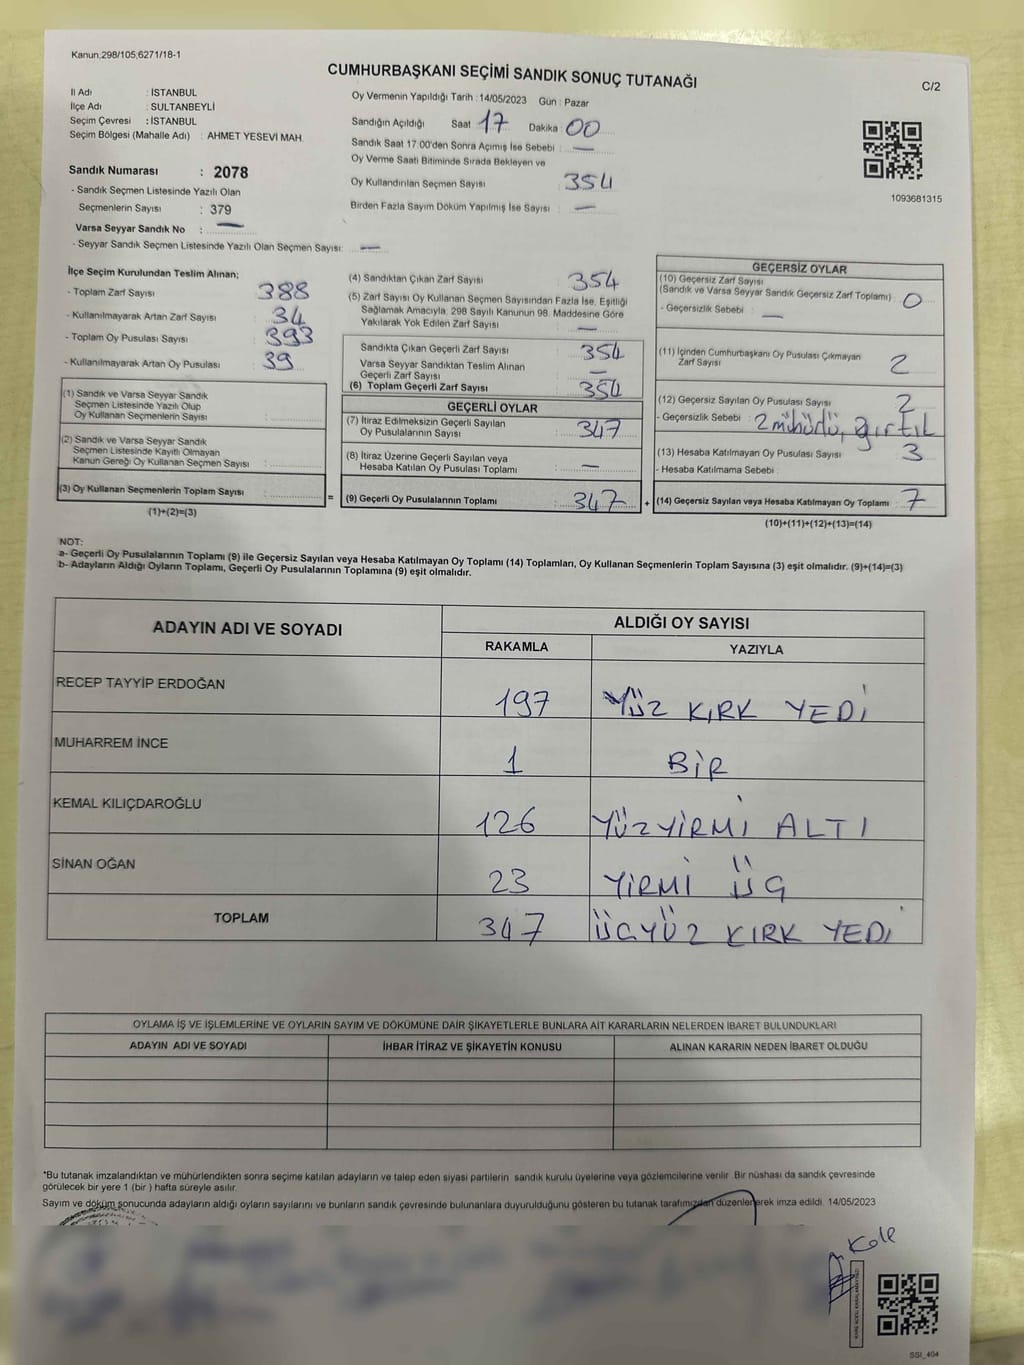 Kanun,298/105,6271/18-1
CUMHURBAŞKANI SEÇİMİ SANDIK SONUÇ TUTANAĞI
C/2
İl Adı : İSTANBUL
İlçe Adı : SULTANBEYLİ
Seçim Çevresi : İSTANBUL
Seçim Bölgesi (Mahalle Adı) : AHMET YESEVİ MAH.
Sandık Numarası : 2078
- Sandık Seçmen Listesinde Yazılı Olan
Seçmenlerin Sayısı : 379
Varsa Seyyar Sandık No : —
- Seyyar Sandık Seçmen Listesinde Yazılı Olan Seçmen Sayısı: —
Oy Vermenin Yapıldığı Tarih : 14/05/2023 Gün : Pazar
Sandığın Açıldığı Saat 17 Dakika : 00
Sandık Saat 17:00'den Sonra Açımış İse Sebebi : —
Oy Verme Saati Bitiminde Sırada Bekleyen ve
Oy Kullandırılan Seçmen Sayısı : 354
Birden Fazla Sayım Döküm Yapılmış İse Sayısı : —
1093681315
İlçe Seçim Kurulundan Teslim Alınan;
- Toplam Zarf Sayısı : 388
- Kullanılmayarak Artan Zarf Sayısı : 34
- Toplam Oy Pusulası Sayısı : 393
- Kullanılmayarak Artan Oy Pusulası : 39
(1) Sandık ve Varsa Seyyar Sandık
Seçmen Listesinde Yazılı Olup
Oy Kullanan Seçmenlerin Sayısı :
(2) Sandık ve Varsa Seyyar Sandık
Seçmen Listesinde Kayıtlı Olmayan
Kanun Gereği Oy Kullanan Seçmen Sayısı :
(3) Oy Kullanan Seçmenlerin Toplam Sayısı : =
(1)+(2)=(3)
(4) Sandıktan Çıkan Zarf Sayısı : 354
(5) Zarf Sayısı Oy Kullanan Seçmen Sayısından Fazla İse, Eşitliği
Sağlamak Amacıyla, 298 Sayılı Kanunun 98. Maddesine Göre
Yakılarak Yok Edilen Zarf Sayısı : —
Sandıkta Çıkan Geçerli Zarf Sayısı : 354
Varsa Seyyar Sandıktan Teslim Alınan
Geçerli Zarf Sayısı : —
(6) Toplam Geçerli Zarf Sayısı : 354
GEÇERLİ OYLAR
(7) İtiraz Edilmeksizin Geçerli Sayılan
Oy Pusulalarının Sayısı : 347
(8) İtiraz Üzerine Geçerli Sayılan veya
Hesaba Katılan Oy Pusulası Toplamı : —
(9) Geçerli Oy Pusulalarının Toplamı : 347 +
GEÇERSİZ OYLAR
(10) Geçersiz Zarf Sayısı
(Sandık ve Varsa Seyyar Sandık Geçersiz Zarf Toplamı) : 0
- Geçersizlik Sebebi : —
(11) İçinden Cumhurbaşkanı Oy Pusulası Çıkmayan
Zarf Sayısı : 2
(12) Geçersiz Sayılan Oy Pusulası Sayısı : 2
- Geçersizlik Sebebi : 2 mühürlü,
(13) Hesaba Katılmayan Oy Pusulası Sayısı : 3
- Hesaba Katılmama Sebebi :
(14) Geçersiz Sayılan veya Hesaba Katılmayan Oy Toplamı : 7
(10)+(11)+(12)+(13)=(14)
NOT:
a- Geçerli Oy Pusulalarının Toplamı (9) ile Geçersiz Sayılan veya Hesaba Katılmayan Oy Toplamı (14) Toplamları, Oy Kullanan Seçmenlerin Toplam Sayısına (3) eşit olmalıdır. (9)+(14)=(3)
b- Adayların Aldığı Oyların Toplamı, Geçerli Oy Pusulalarının Toplamına (9) eşit olmalıdır.
ADAYIN ADI VE SOYADI ALDIĞI OY SAYISI
RAKAMLA YAZIYLA
RECEP TAYYİP ERDOĞAN 197 YÜZ KIRK YEDİ
MUHARREM İNCE 1 BİR
KEMAL KILIÇDAROĞLU 126 YÜZYİRMİ ALTI
SİNAN OĞAN 23 YİRMİ ÜÇ
TOPLAM 347 ÜÇYÜZ KIRK YEDİ
OYLAMA İŞ VE İŞLEMLERİNE VE OYLARIN SAYIM VE DÖKÜMÜNE DAİR ŞİKAYETLERLE BUNLARA AİT KARARLARIN NELERDEN İBARET BULUNDUKLARI
ADAYIN ADI VE SOYADI İHBAR İTİRAZ VE ŞİKAYETİN KONUSU ALINAN KARARIN NEDEN İBARET OLDUĞU
*Bu tutanak imzalandıktan ve mühürlendikten sonra seçime katılan adayların ve talep eden siyasi partilerin sandık kurulu üyelerine veya gözlemcilerine verilir. Bir nüshası da sandık çevresinde
görülecek bir yere 1 (bir ) hafta süreyle asılır.
Sayım ve döküm sonucunda adayların aldığı oyların sayılarını ve bunların sandık çevresinde bulunanlara duyurulduğunu gösteren bu tutanak tarafımızdan düzenlenerek imza edildi. 14/05/2023
SSI_404